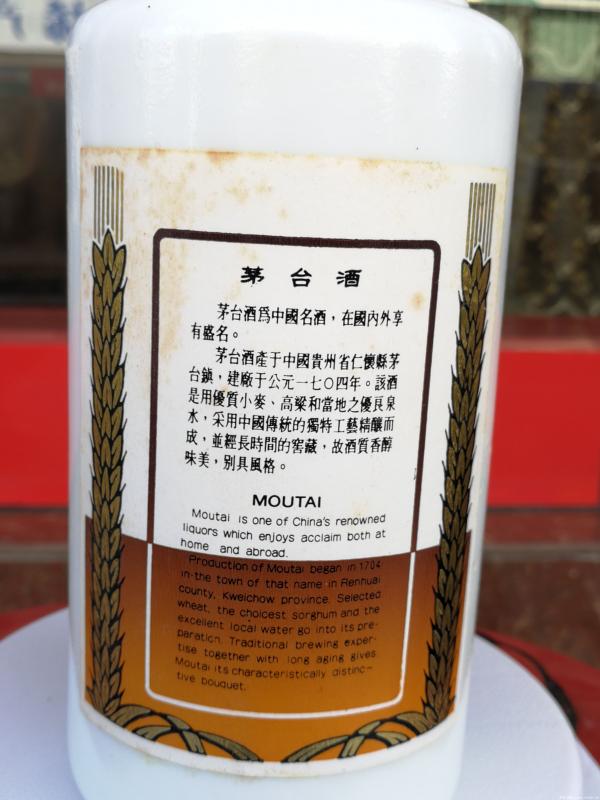 茅台酒
茅台酒爲中國名酒，在國內外享
有盛名。
茅台酒產于中國貴州省仁懷縣茅
台鎮，建廠于公元一七〇四年。該酒
是用優質小麥、高粱和當地之優良泉
水，采用中國傳統的獨特工藝精釀而
成，並經長時間的窖藏，故酒質香醇
味美，別具風格。
MOUTAI
Moutai is one of China's renowned
liquors which enjoys acclaim both at
home and abroad.
Production of Moutai began in 1704
in the town of that name in Renhuai
county, Kweichow province. Selected
wheat, the choicest sorghum and the
excellent local water go into its pre-
paration. Traditional brewing exper-
tise together with long aging gives
Moutai its characteristically distinc-
tive bouquet.